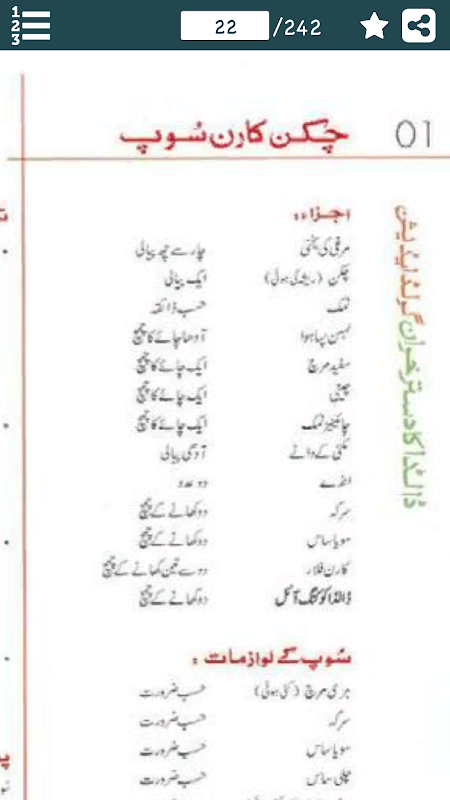 1
2
3
22 /242
01 چکن کارن سُوپ
اجزاء:
مرغی کی یخنی چار سے چھ پیالی
چکن (ریشہ کی ہوئی) ایک پیالی
نمک حسب ذائقہ
لہسن پسا ہوا آدھا چائے کا چمچ
سفید مرچ ایک چائے کا چمچ
چینی ایک چائے کا چمچ
چائنیز نمک ایک چائے کا چمچ
مکئی کے دانے آدھی پیالی
انڈے دو عدد
سرکہ دو کھانے کے چمچ
سویا ساس دو کھانے کے چمچ
کارن فلار دو سے تین کھانے کے چمچ
ڈالڈا کوکنگ آئل دو کھانے کے چمچ
سُوپ کے لوازمات :
ہری مرچ (کٹی ہوئی) حسب ضرورت
سرکہ حسب ضرورت
سویا ساس حسب ضرورت
چلی ساس حسب ضرورت
ڈالڈا کا دسترخوان گولڈ ایڈیشن